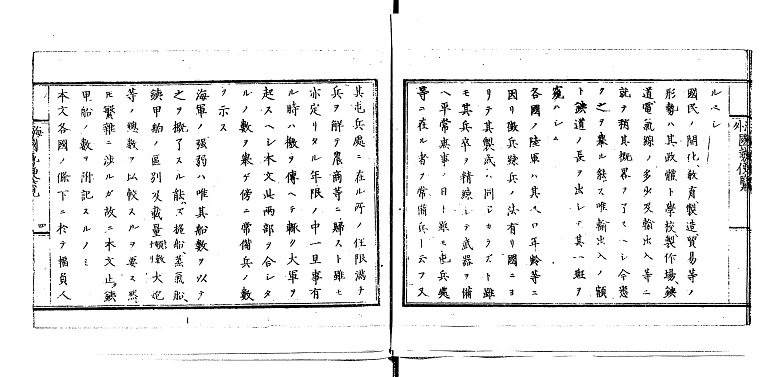 ルベシ
國民ノ開化教育製造貿易等ノ
形勢ハ其政體ト學校製作場鐵
道電氣線ノ多少及輸出入等ニ
就テ稍其概畧ヲ了スベシ今悉
ク之ヲ舉ル能ス唯輸出入ノ額
ト鐵道ノ長ヲ出シテ其一斑ヲ
窺ハシム
各國ノ陸軍ハ其人口年齡等ニ
因リ徴兵練兵ノ法有リ國ニヨ
リテ其製式ハ同ジカラズト雖
モ其兵卒ヲ精錬シテ武器ヲ備
ヘ平常無事ノ日ト雖モ屯兵處
等ニ在ル者ヲ常備兵ト云フ又
其屯兵處ニ在ル所ノ任限滿テ
兵ヲ解テ農商等ニ歸スト雖モ
亦定リタル年限ノ中一旦事有
ル時ハ檄ヲ傳ヘテ輒ク大軍ヲ
起スベシ本文此兩部ヲ合シタ
ルノ數ヲ舉ゲ傍ニ常備兵ノ數
ヲ示ス
海軍ノ强弱ハ唯其船數ヲ以テ
之ヲ概スル能ズ握船蒸氣船
鐵甲舶ノ區別及載量噸數大炮
等ノ總數ヲ以較スルヲ要ス然
モ繁雜ニ涉ルガ故ニ本文止鐵
甲船ノ數ヲ附記スルノミ
本文各國ノ條下ニ於テ幅員人
四